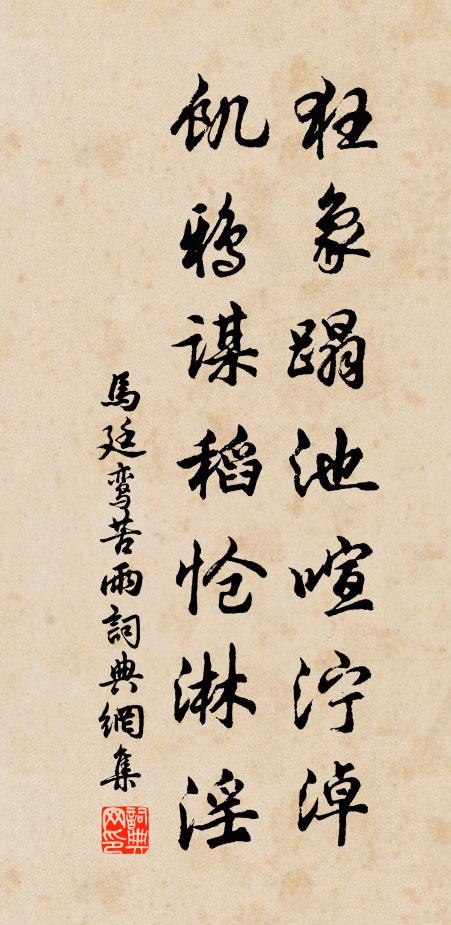 狂象蹋池喧泞淖
飢鴉謀稻怆淋淫
馬廷鸾苦雨詞典網集
詞典網印